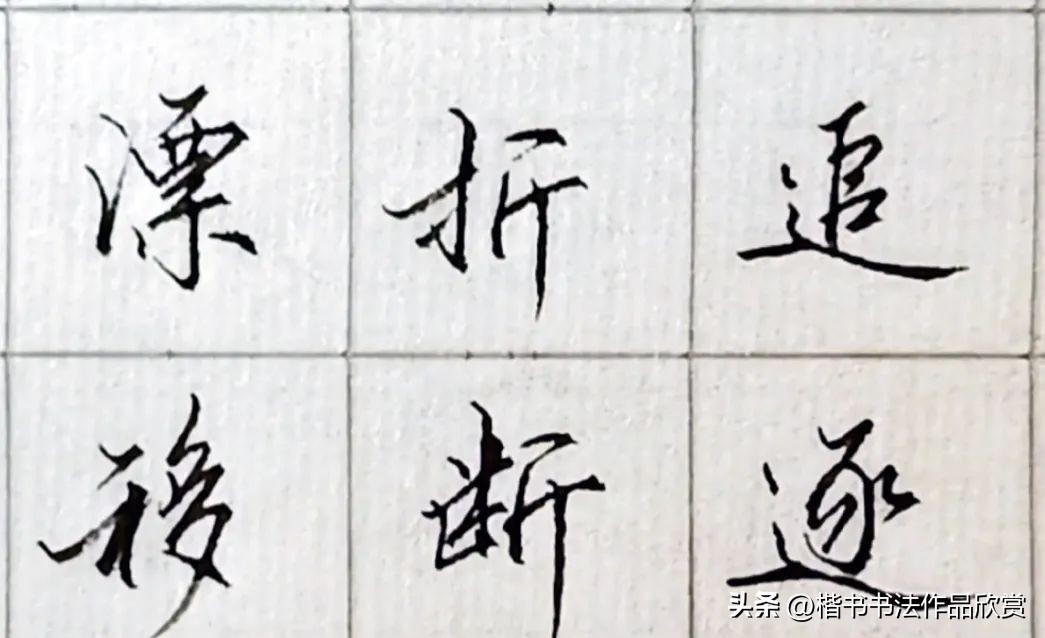 漂折追
移断逐
头条 @楷书书法作品欣赏